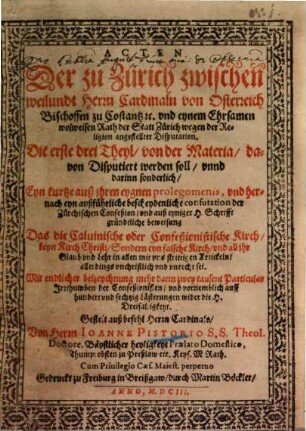 ACTEN
Der zu Zürich zwischen
weilundt Herrn Cardinaln von Osterreich
Bischoffen zu Costantz ꝛc. vnd eynem Ehrsamen
wolweisen Rath der Statt Zürich wegen der Re-
ligion angestelter Disputation,
Die erste drei Theyl / von der Materia / da-
von Disputiert werden soll / vnnd
darinn sonderlich /
Eyn kurtze auß ihren eygnen prolegomenis, vnd her-
nach eyn außführliche bescheydenliche confutation der
Zürchischen Confession / vnd auß eyniger H. Schrifft
gründtliche beweisung
Das die Caluinische oder Confessionistische Kirch /
keyn Kirch Christi / Sondern eyn falsche Kirch / vnd all ihr
Glaub vnd Lehr in allen mit vns stritigen Articklen /
allerdings vnchristlich vnd vnrecht sei.
Mit endlicher beizeychnung mehr dann zwey tausent Particular
Irrthumben der Confessionisten / vnd vornemblich auff
hundert vnd sechzig Lästerungen wider die H.
Dreifaltigkeyt.
Gestelt auß befehl Herrn Cardinals /
Von Herrn IOANNE PISTORIO S. S. Theol.
Doctore. Bäpstlicher heyligkeyt Prælato Domestico,
Thumprobsten zu Preßlaw etc. Keys. M. Rath.
Cum Priuilegio Cæs. Maiest. perpetuo
Gedruckt zu Freiburg in Breißgaw / durch Martin Böckler /
ANNO, M. DCIII.